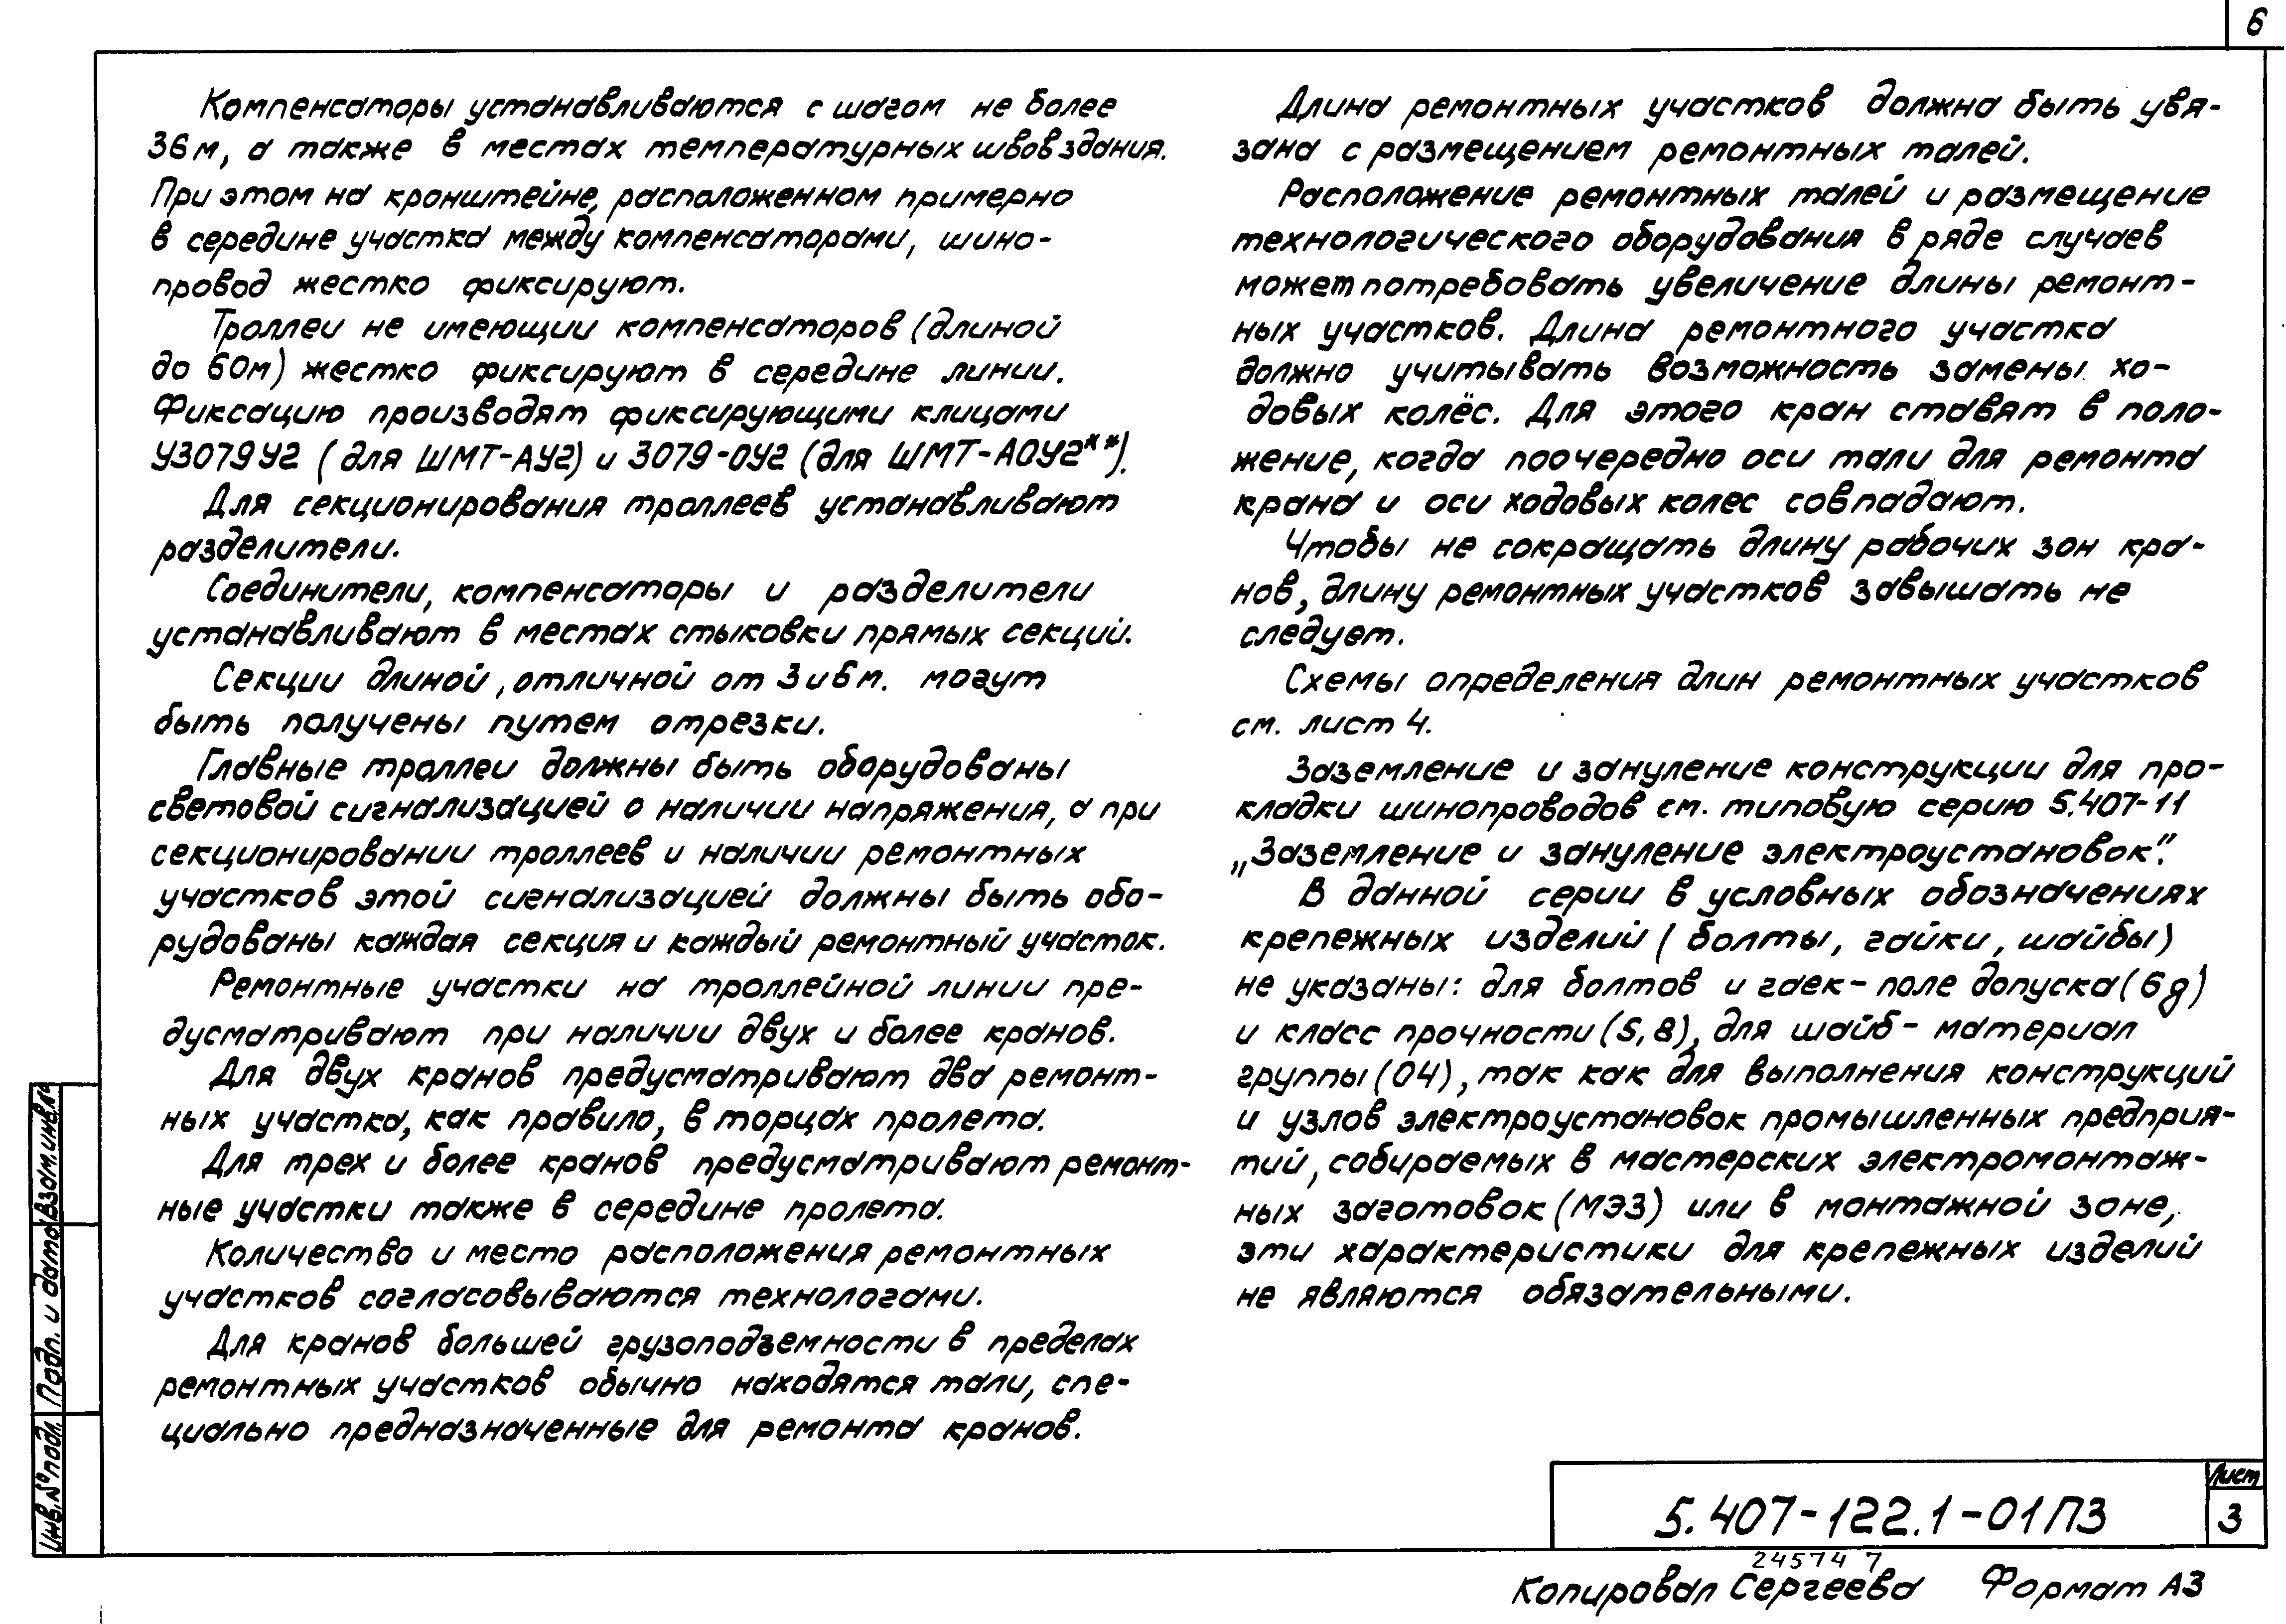 6
Компенсаторы устанавливаются с шагом не более
36м, а также в местах температурных швов здания.
При этом на кронштейне, расположенном примерно
в середине участка между компенсаторами, шино-
провод жестко фиксируют.
Троллеи не имеющии компенсаторов (длиной
до 60м) жестко фиксируют в середине линии.
Фиксацию производят фиксирующими клицами
У3079У2 (для ШМТ-АУ2) и 3079-ОУ2 (для ШМТ-АОУ2**).
Для секционирования троллеев устанавливают
разделители.
Соединители, компенсаторы и разделители
устанавливают в местах стыковки прямых секций.
Секции длиной, отличной от 3 и 6 м. могут
быть получены путем отрезки.
Главные троллеи должны быть оборудованы
световой сигнализацией о наличии напряжения, а при
секционировании троллеев и наличии ремонтных
участков этой сигнализацией должны быть обо-
рудованы каждая секция и каждый ремонтный участок.
Ремонтные участки на троллейной линии пре-
дусматривают при наличии двух и более кранов.
Для двух кранов предусматривают два ремонт-
ных участка, как правило, в торцах пролета.
Для трех и более кранов предусматривают ремонт-
ные участки также в середине пролета.
Количество и место расположения ремонтных
участков согласовываются технологами.
Для кранов большей грузоподъемности в пределах
ремонтных участков обычно находятся тали, спе-
циально предназначенные для ремонта кранов.
Длина ремонтных участков должна быть увя-
зана с размещением ремонтных талей.
Расположение ремонтных талей и размещение
технологического оборудования в ряде случаев
может потребовать увеличение длины ремонт-
ных участков. Длина ремонтного участка
должно учитывать возможность замены хо-
довых колёс. Для этого кран ставят в поло-
жение, когда поочередно оси тали для ремонта
крана и оси ходовых колес совпадают.
Чтобы не сокращать длину рабочих зон кра-
нов, длину ремонтных участков завышать не
следует.
Схемы определения длин ремонтных участков
см. лист 4.
Заземление и зануление конструкции для про-
кладки шинопроводов см. типовую серию 5.407-11
„Заземление и зануление электроустановок".
В данной серии в условных обозначениях
крепежных изделий (болты, гайки, шайбы)
не указаны: для болтов и гаек - поле допуска (6g)
и класс прочности (5,8), для шайб - материал
группы (04), так как для выполнения конструкций
и узлов электроустановок промышленных предприя-
тий, собираемых в мастерских электромонтаж-
ных заготовок (МЭЗ) или в монтажной зоне,
эти характеристики для крепежных изделий
не являются обязательными.
Инв.№подл. Подп. и дата Взам.инв.№
5.407-122.1-01ПЗ
Лист
3
24574 7
Копировал Сергеева Формат А3